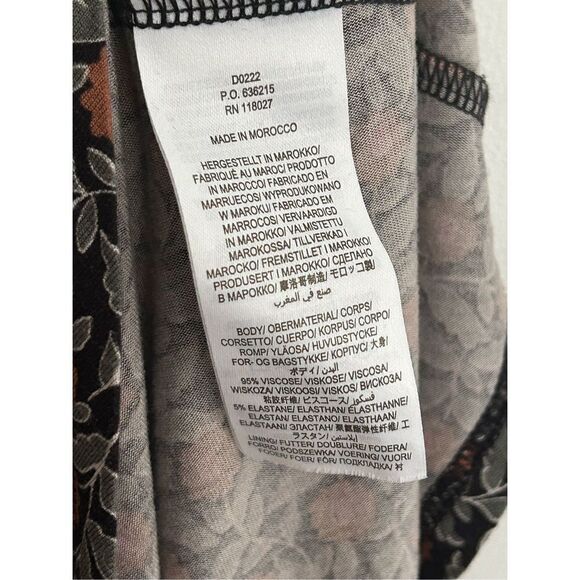 D0222
P.O. 636215
RN 118027
MADE IN MOROCCO
HERGESTELLT IN MAROKKO/
FABRIQUÉ AU MAROC/ PRODOTTO
IN MAROCCO/ FABRICADO EN
MARRUECOS/ WYPRODUKOWANO
W MAROKU/ FABRICADO EM
MARROCOS/ VERVAARDIGD
IN MAROKKO/ VALMISTETTU
MAROKOSSA/ TILLVERKAD I
MAROCKO/ FREMSTILLET I MAROKKO/
PRODUSERT I MAROKKO/ СДЕЛАНО
В МАРОККО/ 摩洛哥制造/ モロッコ製/
صنع في المغرب
BODY/ OBERMATERIAL/ CORPS/
CORSETTO/ CUERPO/ KORPUS/ CORPO/
ROMP/ YLÄOSA/ HUVUDSTYCKE/
FOR- OG BAGSTYKKE/ КОРПУС/ 大身/
ボディ/ البدن/
95% VISCOSE/ VISKOSE/ VISCOSA/
WISKOZA/ VISKOOSI/ VISKOS/ ВИСКОЗА/
粘胶纤维/ ビスコース/ فسكوز/
5% ELASTANE/ ELASTHAN/ ELASTHANNE/
ELASTAN/ ELASTANO/ ELASTHAAN/
ELASTAANI/ ЭЛАСТАН/ 聚氨酯弹性纤维/ エ
ラスタン/ إيلاستين/
LINING/ FUTTER/ DOUBLURE/ FODERA/
FORRO/ PODSZEWKA/ VOERING/ VUORI/
FODER/ FOER/ FÔR/ ПОДКЛАДКА/ 衬